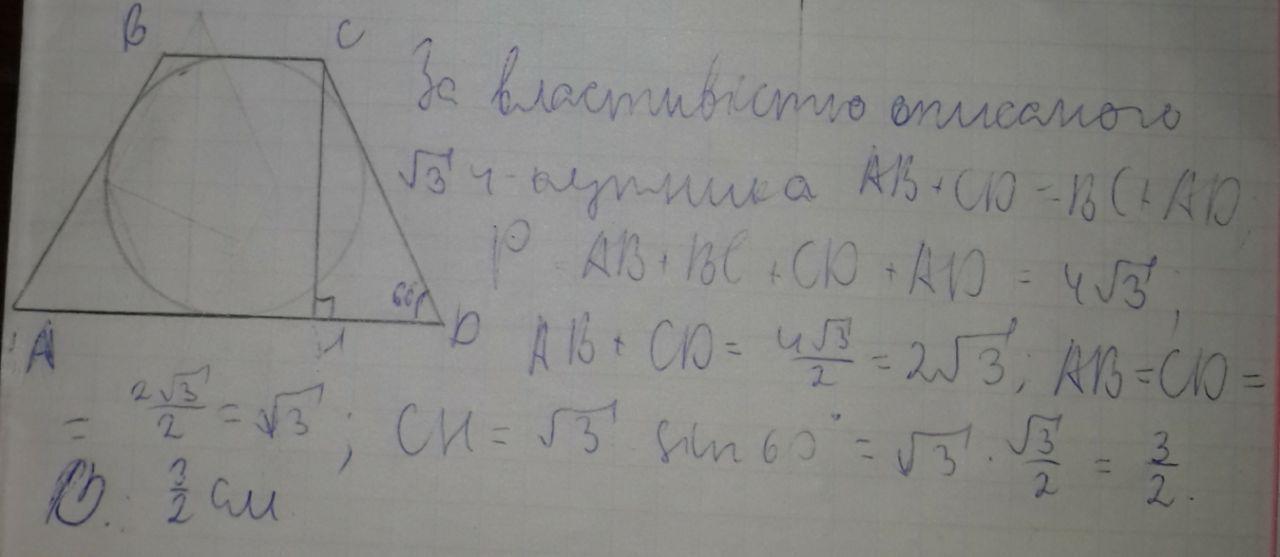 B C
За властивістю описаного
√3 4-кутника AB + CD = BC + AD;
P = AB + BC + CD + AD = 4√3;
60°
A H D
AB + CD = 4√3/2 = 2√3; AB = CD =
= 2√3/2 = √3; CH = √3 · sin 60° = √3 · √3/2 = 3/2.
В: 3/2 см